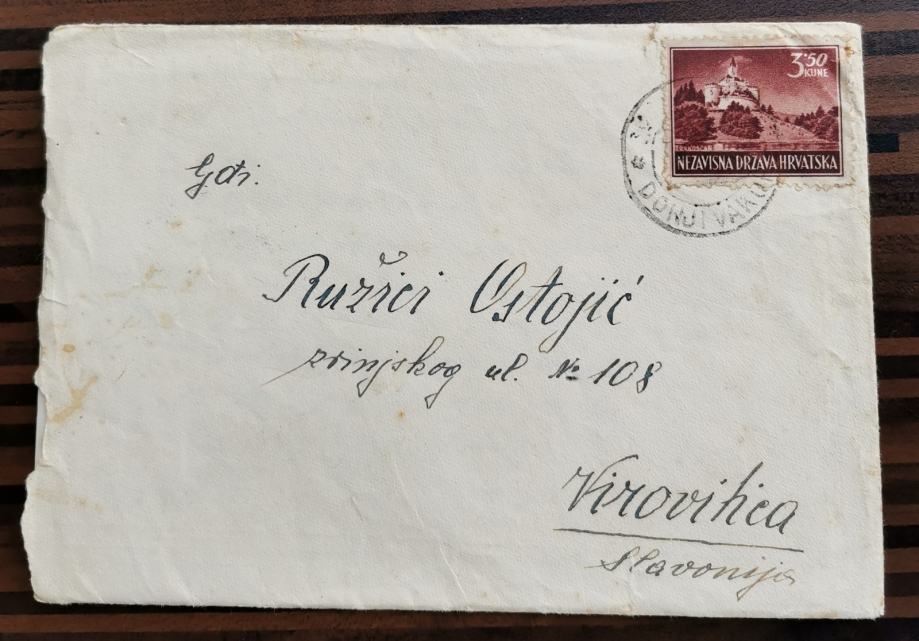 3·50
KUNE
TRAKOŠĆAN
NEZAVISNA DRŽAVA HRVATSKA
DONJI VAKU
Gđi.
Ružici Ostojić
zrinjskog ul. № 108
Virovitica
Slavonija